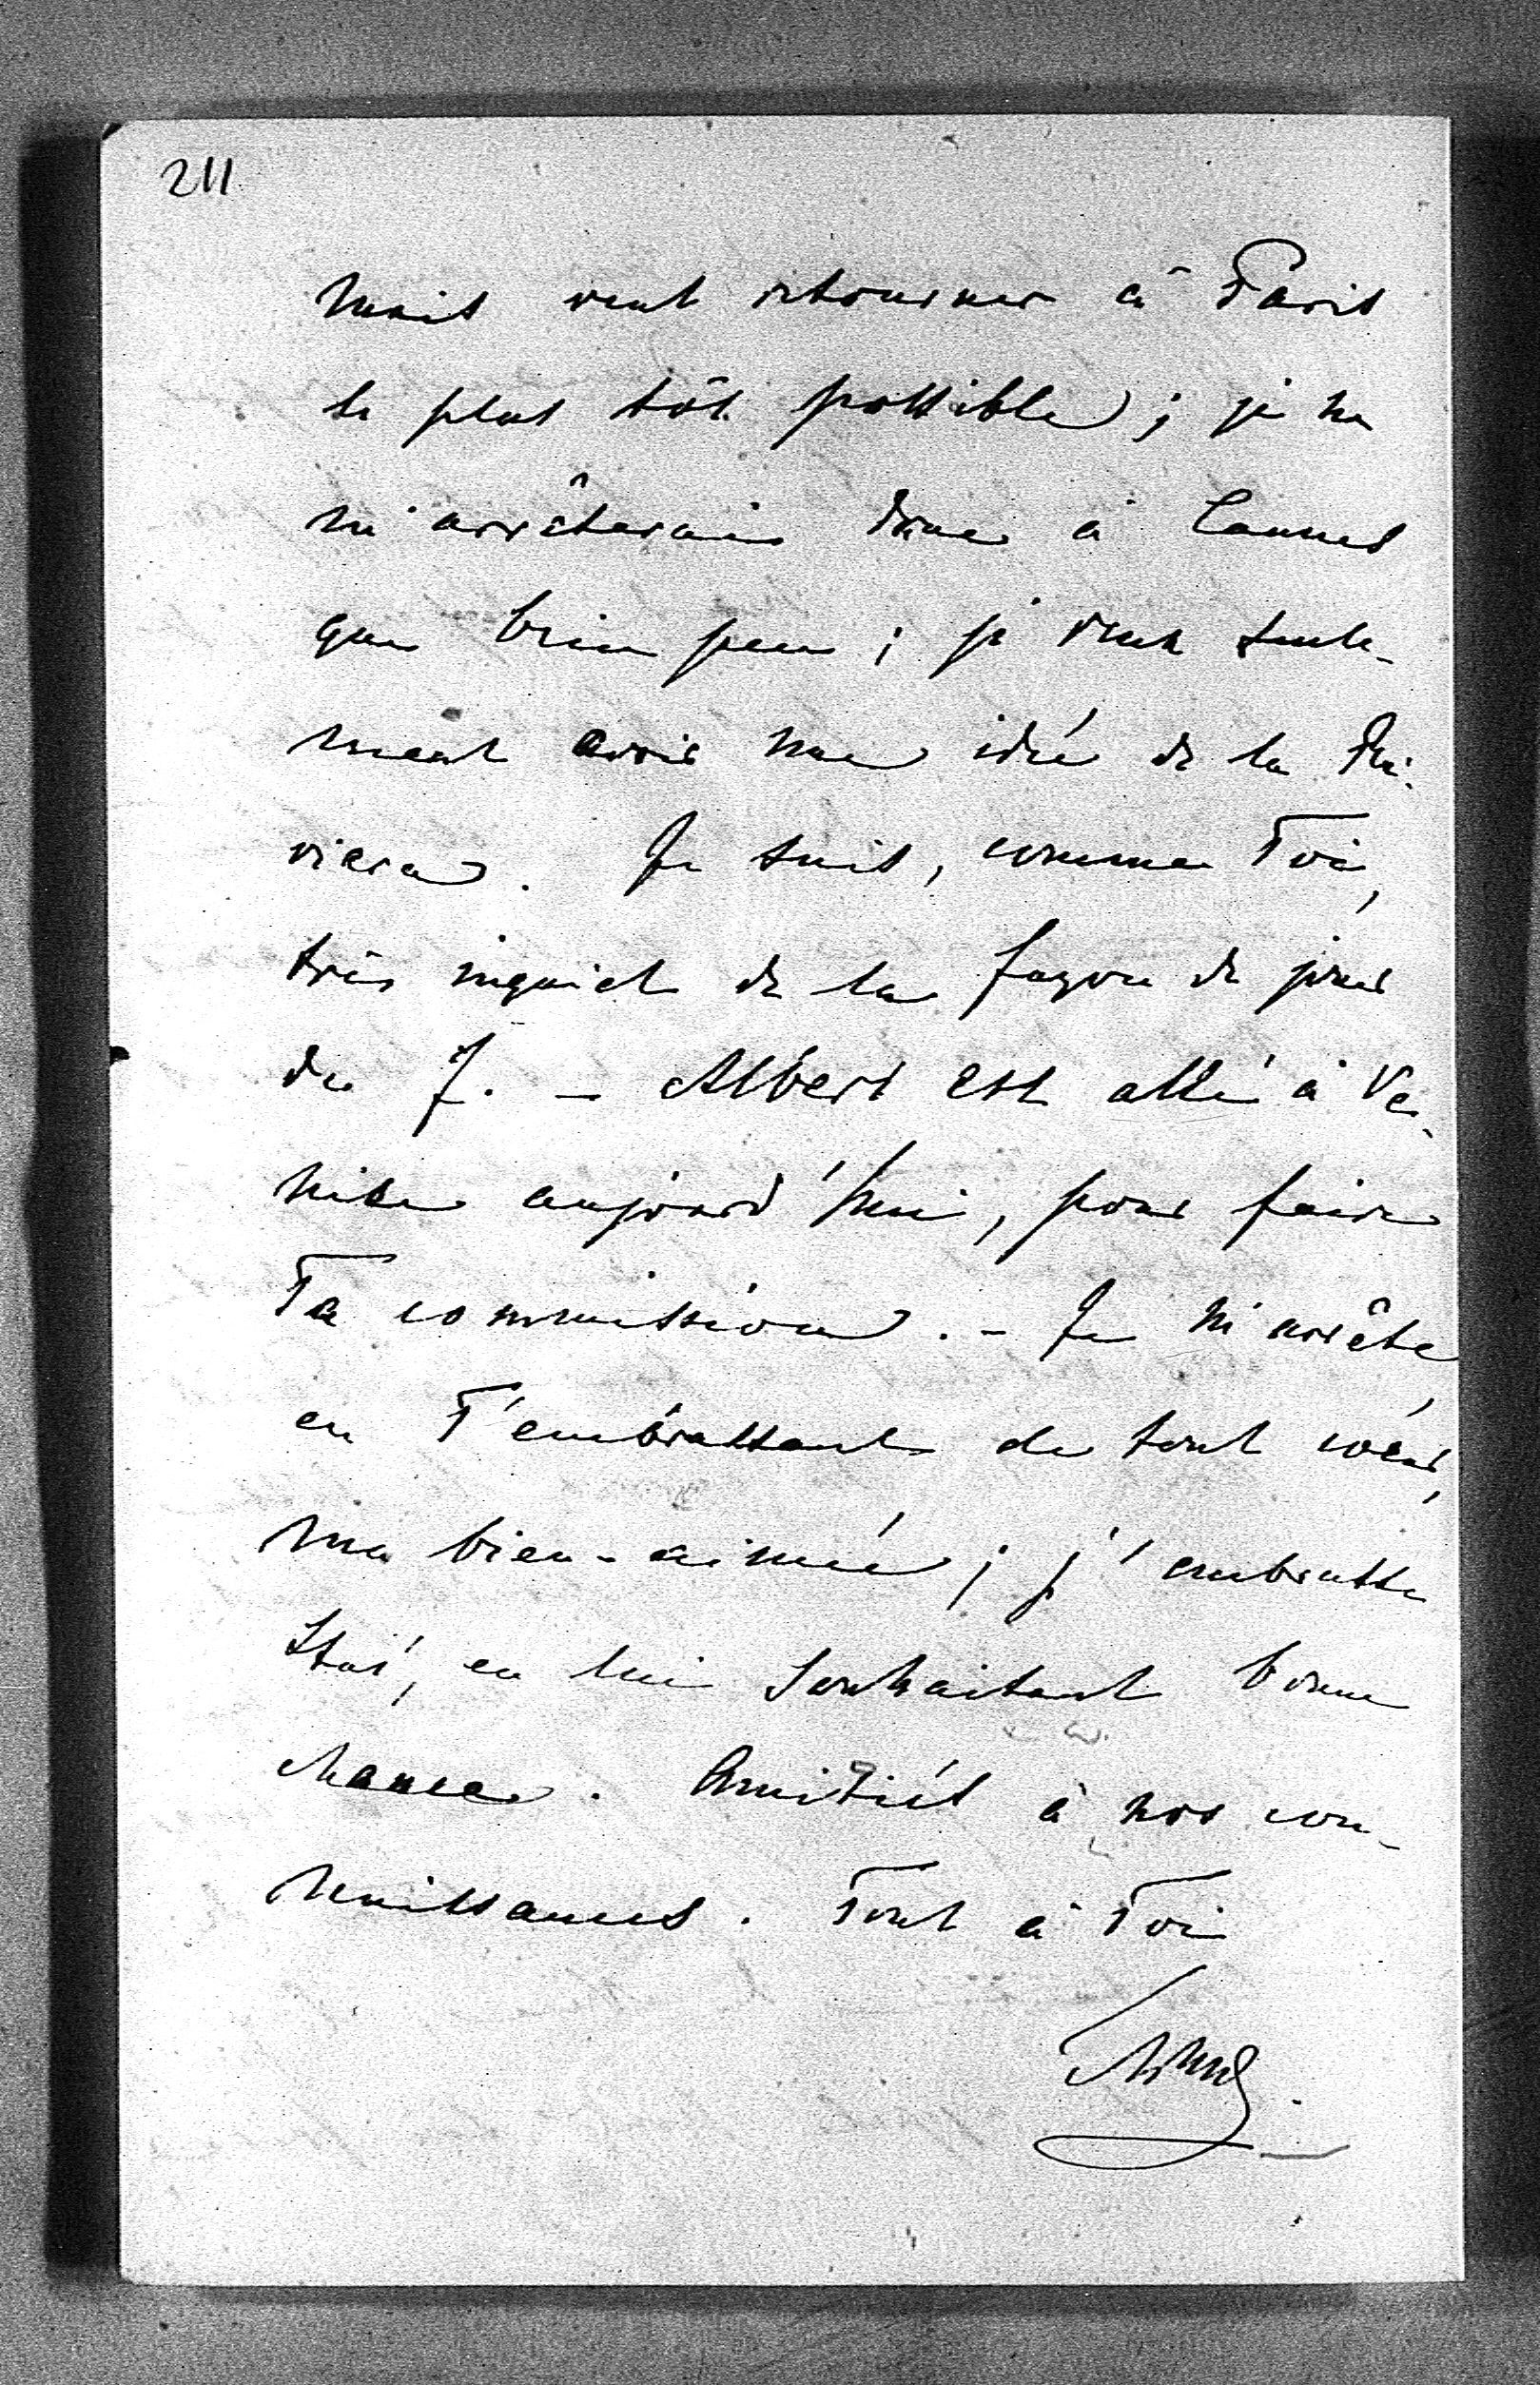 211
mais veut retourner à Paris
le plus tôt possible ; je ne
m'arrêterais donc à Cannes
que bien peu ; je veux seule-
ment avoir une idée de la Ri-
viera. Je suis, comme Toi,
très inquiet de la façon de jouer
du J. – Albert est allé à Ve-
nise aujourd'hui, pour faire
Ta commission. – Je m'arrête,
en T'embrassant de tout coeur,
ma bien-aimée ; j'embrasse
Stas', en lui souhaitant bonne
chance. Amitiés à nos con-
naissances. Tout à Toi